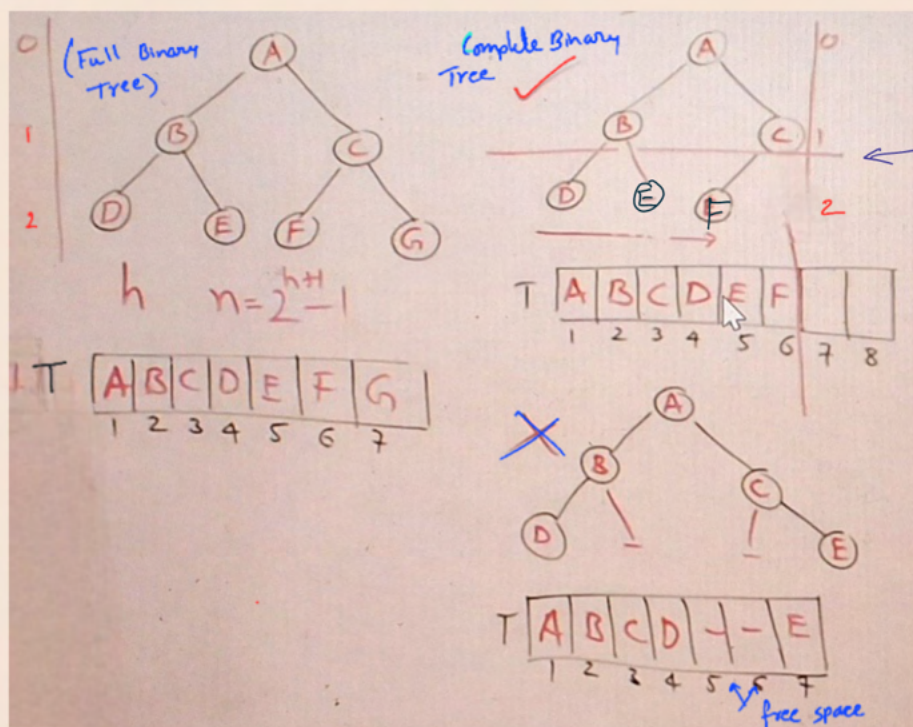 0
(Full Binary
Tree)
A
1
B
C
2
D
E
F
G
h n=2^{h+1}-1
T A B C D E F G
1 2 3 4 5 6 7
Complete Binary
Tree
A
0
B
C
1
D
E
F
2
T A B C D E F
1 2 3 4 5 6 7 8
A
B
C
D
-
-
E
T A B C D - - E
1 2 3 4 5 6 7
free space